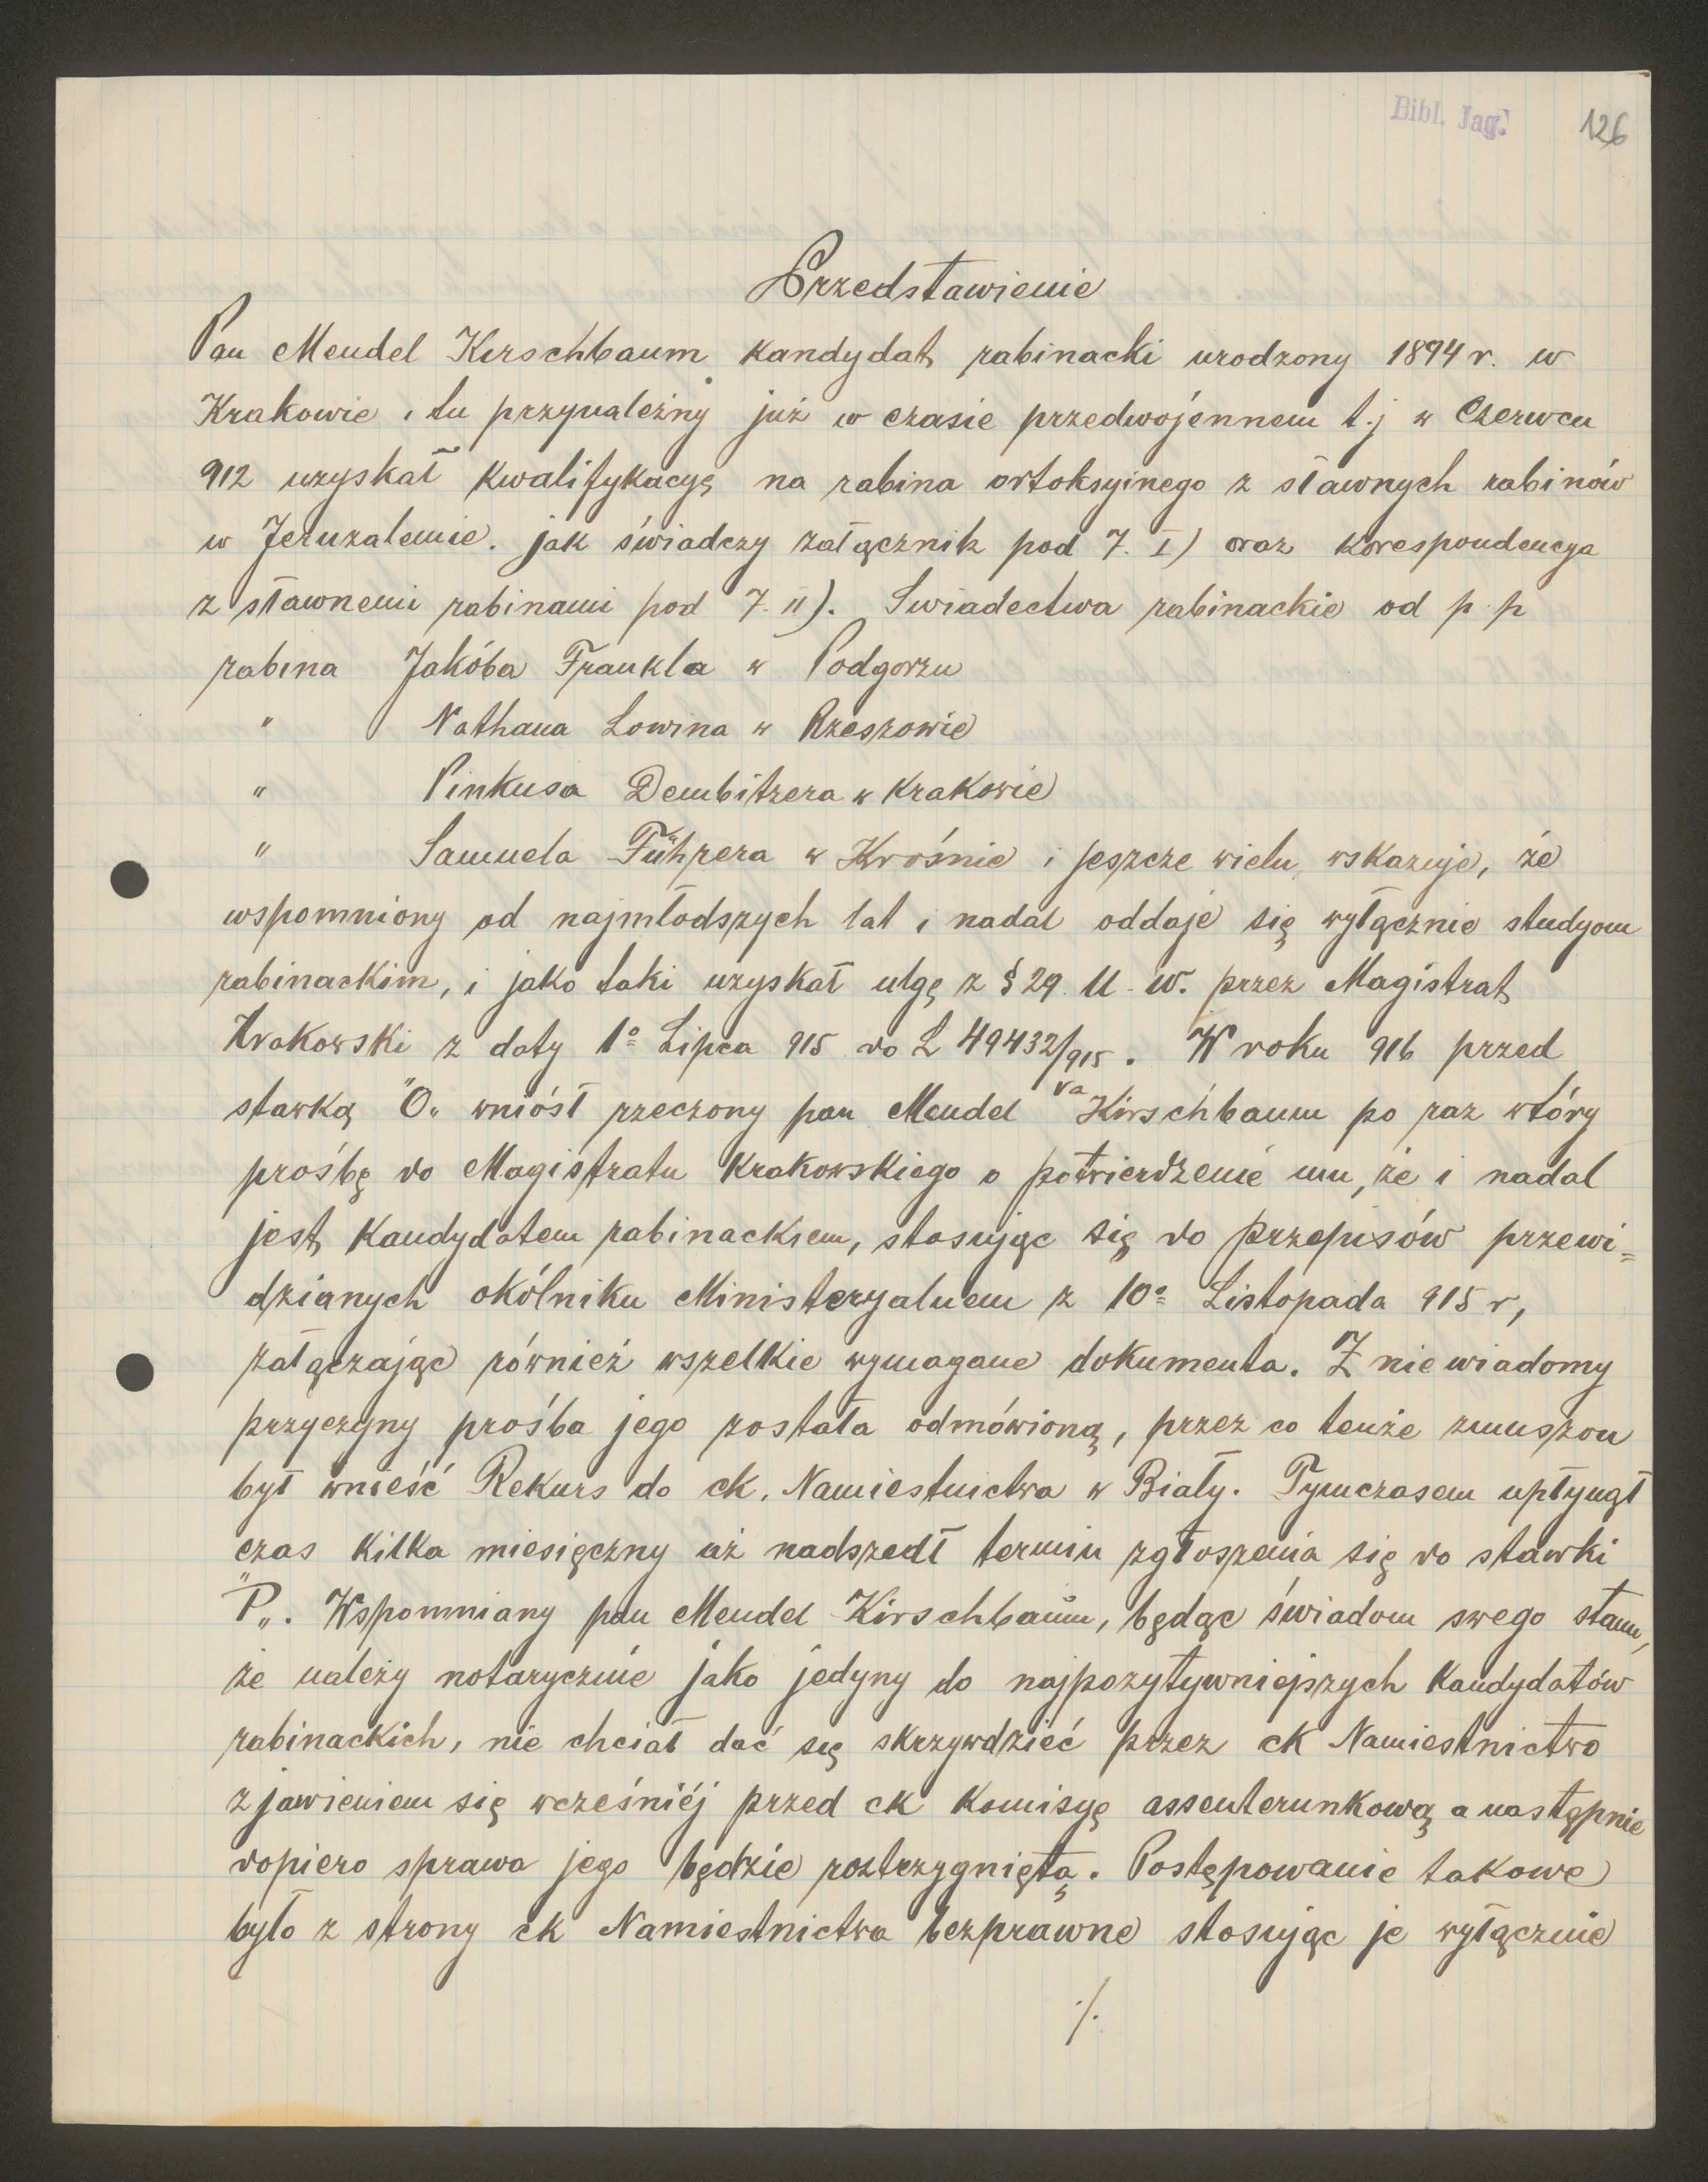 Bibl. Jag.
126
Przedstawienie
Pan Mendel Kirschbaum kandydat rabinacki urodzony 1894 r. w
Krakowie i tu przynależny już w czasie przedwojennem t.j w Czerwcu
912 uzyskał kwalifykacyę na rabina ortoksyinego z sławnych rabinów
w Jeruzalemie. jak świadczy załącznik pod 7. I) oraz korespondencya
z sławnemi rabinami pod 7. II). Swiadectwa rabinackie od p. p
rabina Jakóba Frankla w Podgorzu
" Nathana Lowina w Rzeszowie
" Pinkusa Dembitzera w Krakowie
" Samuela Führera w Krośnie i jeszcze wielu, wskazuje, że
wspomniony od najmłodszych lat i nadal oddaje się wyłącznie studyom
rabinackim, i jako taki uzyskał ulgę z § 29. U. W. przez Magistrat
Krakowski z daty 1º Lipca 915 do L 49432/915. W roku 916 przed
stawką "O„ wniósł rzeczony pan Mendel Kirschbaum po raz wtóry
prośbę do Magistratu Krakowskiego o potwierdzenie mu, że i nadal
jest kandydatem rabinackiem, stosując się do przepisów przewi=
dzianych okólniku Ministeryalnem z 10º Listopada 915 r,
załączając również wszelkie wymagane dokumenta. Z nie wiadomy
przyczyny prośba jego została odmówioną, przez co tenże zmuszon
był wnieść Rekurs do ck. Namiestnictwa w Biały. Tymczasem upłynął
czas kilka miesięczny aż nadszedł termin zgłoszenia się do stawki
"P„. Wspomniany pan Mendel Kirschbaum, będąc świadom swego stanu,
że należy notarycznie jako jedyny do najpozytywniejszych kandydatów
rabinackich, nie chciał dać się skrzywdzieć przez ck Namiestnictwo
zjawieniem się wcześniéj przed ck Komisyę assenterunkową a następnie
dopiero sprawa jego będzie roztrzygniętą. Postępowanie takowe
było z strony ck Namiestnictwa bezprawne stosując je wyłącznie
./.